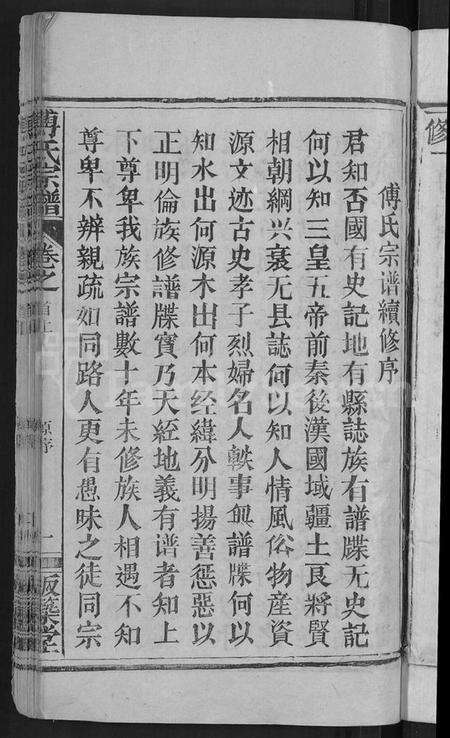 傅氏宗谱續修序
君知否國有史記地有縣誌族有譜牒无史記
何以知三皇五帝前秦後漢國域疆土良將賢
相朝綱兴衰无县誌何以知人情風俗物産資
源文迹古史孝子烈婦名人軼事無譜牒何以
知水出何源木出何本经緯分明揚善惩惡以
正明倫族修譜牒實乃天經地義有谱者知上
下尊卑我族宗譜數十年未修族人相遇不知
尊卑不辨親疏如同路人更有愚昧之徒同宗
傅氏宗譜
卷之首上
原序
一
版築堂
修